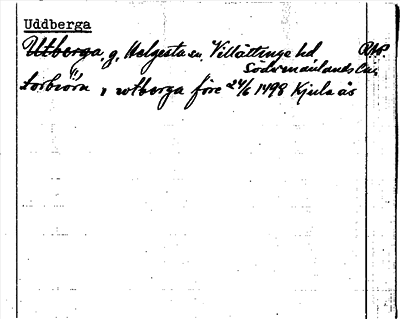 Uddberga
Utberga, g, Helgesta sn Villåttinge hd RAP
Södermanlands
torbiörn i wtberga före 24/6 1498 Kjula ås